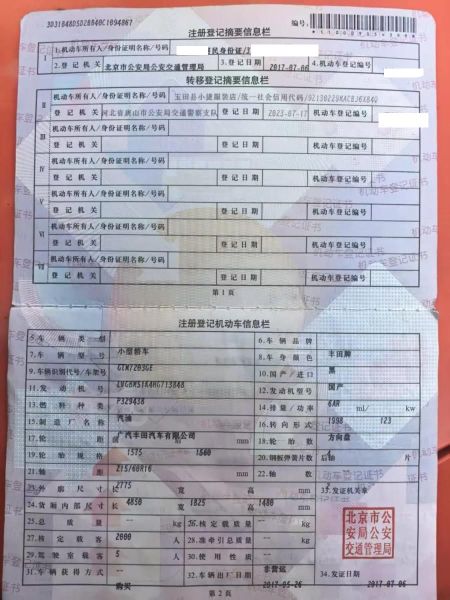 3D31848D5D2BD40C1094867
注册登记摘要信息栏
编号:
I 1.机动车所有人/身份证明名称/号码 居民身份证/
2.登记机关 北京市公安局公安交通管理局 3.登记日期 2017-07-06 4.机动车登记编号
转移登记摘要信息栏
II 机动车所有人/身份证明名称/号码 玉田县小捷服装店/统一社会信用代码/
登记机关 河北省唐山市公安局交通警察支队 登记日期 2023-07-17 机动车登记编号
III 机动车所有人/身份证明名称/号码
登记机关 登记日期 机动车登记编号
IV 机动车所有人/身份证明名称/号码
登记机关 登记日期 机动车登记编号
V 机动车所有人/身份证明名称/号码
登记机关 登记日期 机动车登记编号
VI 机动车所有人/身份证明名称/号码
登记机关 登记日期 机动车登记编号
VII 机动车所有人/身份证明名称/号码
登记机关 登记日期 机动车登记编号
第1页
注册登记机动车信息栏
5.车辆类型 6.车辆品牌
小型轿车 丰田牌
7.车辆型号 8.车身颜色
GTM7203GE 黑
9.车辆识别代号/车架号 10.国产/进口
国产
11.发动机号 12.发动机型号
P329438 6AR
13.燃料种类 14.排量/功率 ml/ kw
汽油 1998 123
15.制造厂名称 16.转向形式
广汽丰田汽车有限公司 方向盘
17.轮距 前 1575 后 1560 mm 18.轮胎数
19.轮胎规格 20.钢板弹簧片数 后轴 片
215/60R16
21.轴距 2775 mm 22.轴数 2
23.外廓尺寸 长 4850 宽 1825 高 1480 mm 33.发证机关章
24.货厢内部尺寸 长 宽 高 mm
25.总质量 kg 26.核定载质量 kg
27.核定载客 人 28.准牵引总质量 kg
5
29.驾驶室载客 人 30.使用性质
非营运
31.车辆获得方式 32.车辆出厂日期 34.发证日期
购买 2017-05-26 2017-07-06
北京市公
安局公安
交通管理局
第2页
机动车登记证书